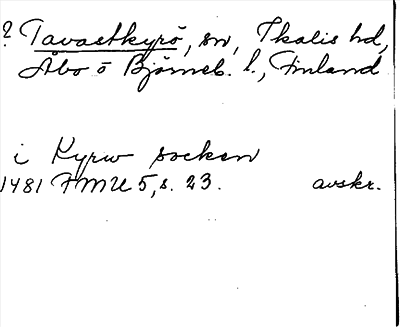 ? Tavastkyrö, sn, Ikalis hd,
Åbo o Björneb. l., Finland
i Kyrw socken
1481 FMU 5, s. 23. avskr.